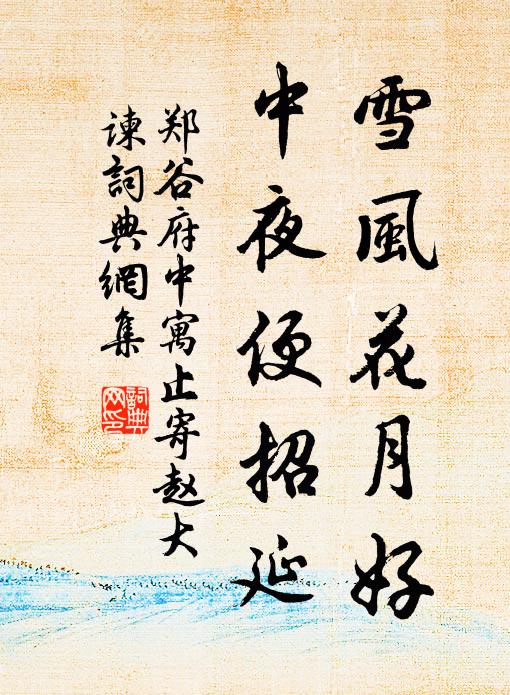 雪風花月好
中夜便招延
郑谷府中寓止寄赵大
諫詞典網集
詞典网印